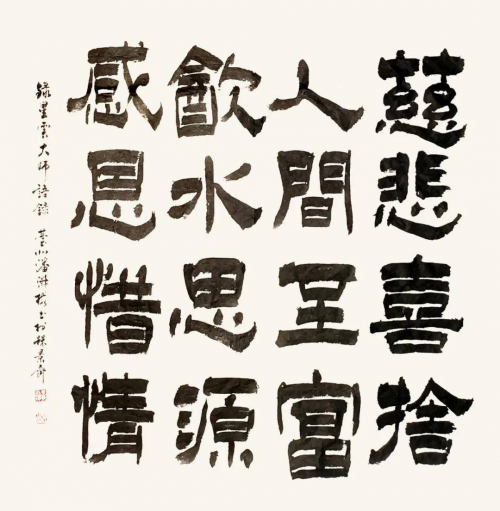 慈悲喜捨
人間至富
飲水思源
感恩惜情
錄星雲大師語錄